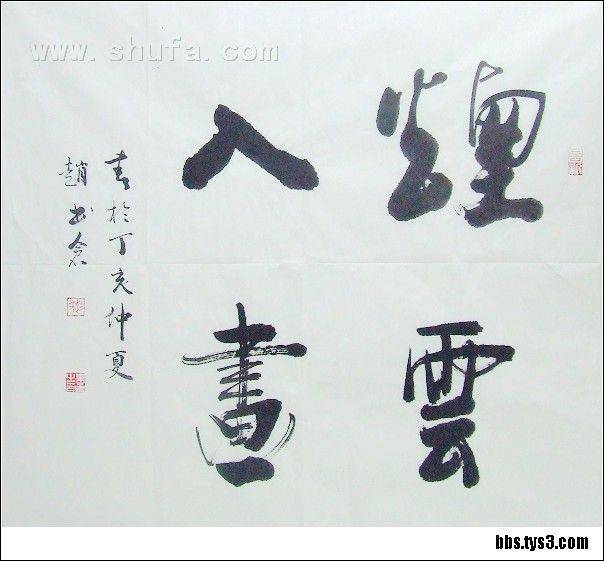 www.shufa.com
煙雲
入畫
書於丁亥仲夏
趙
bbs.tys3.com